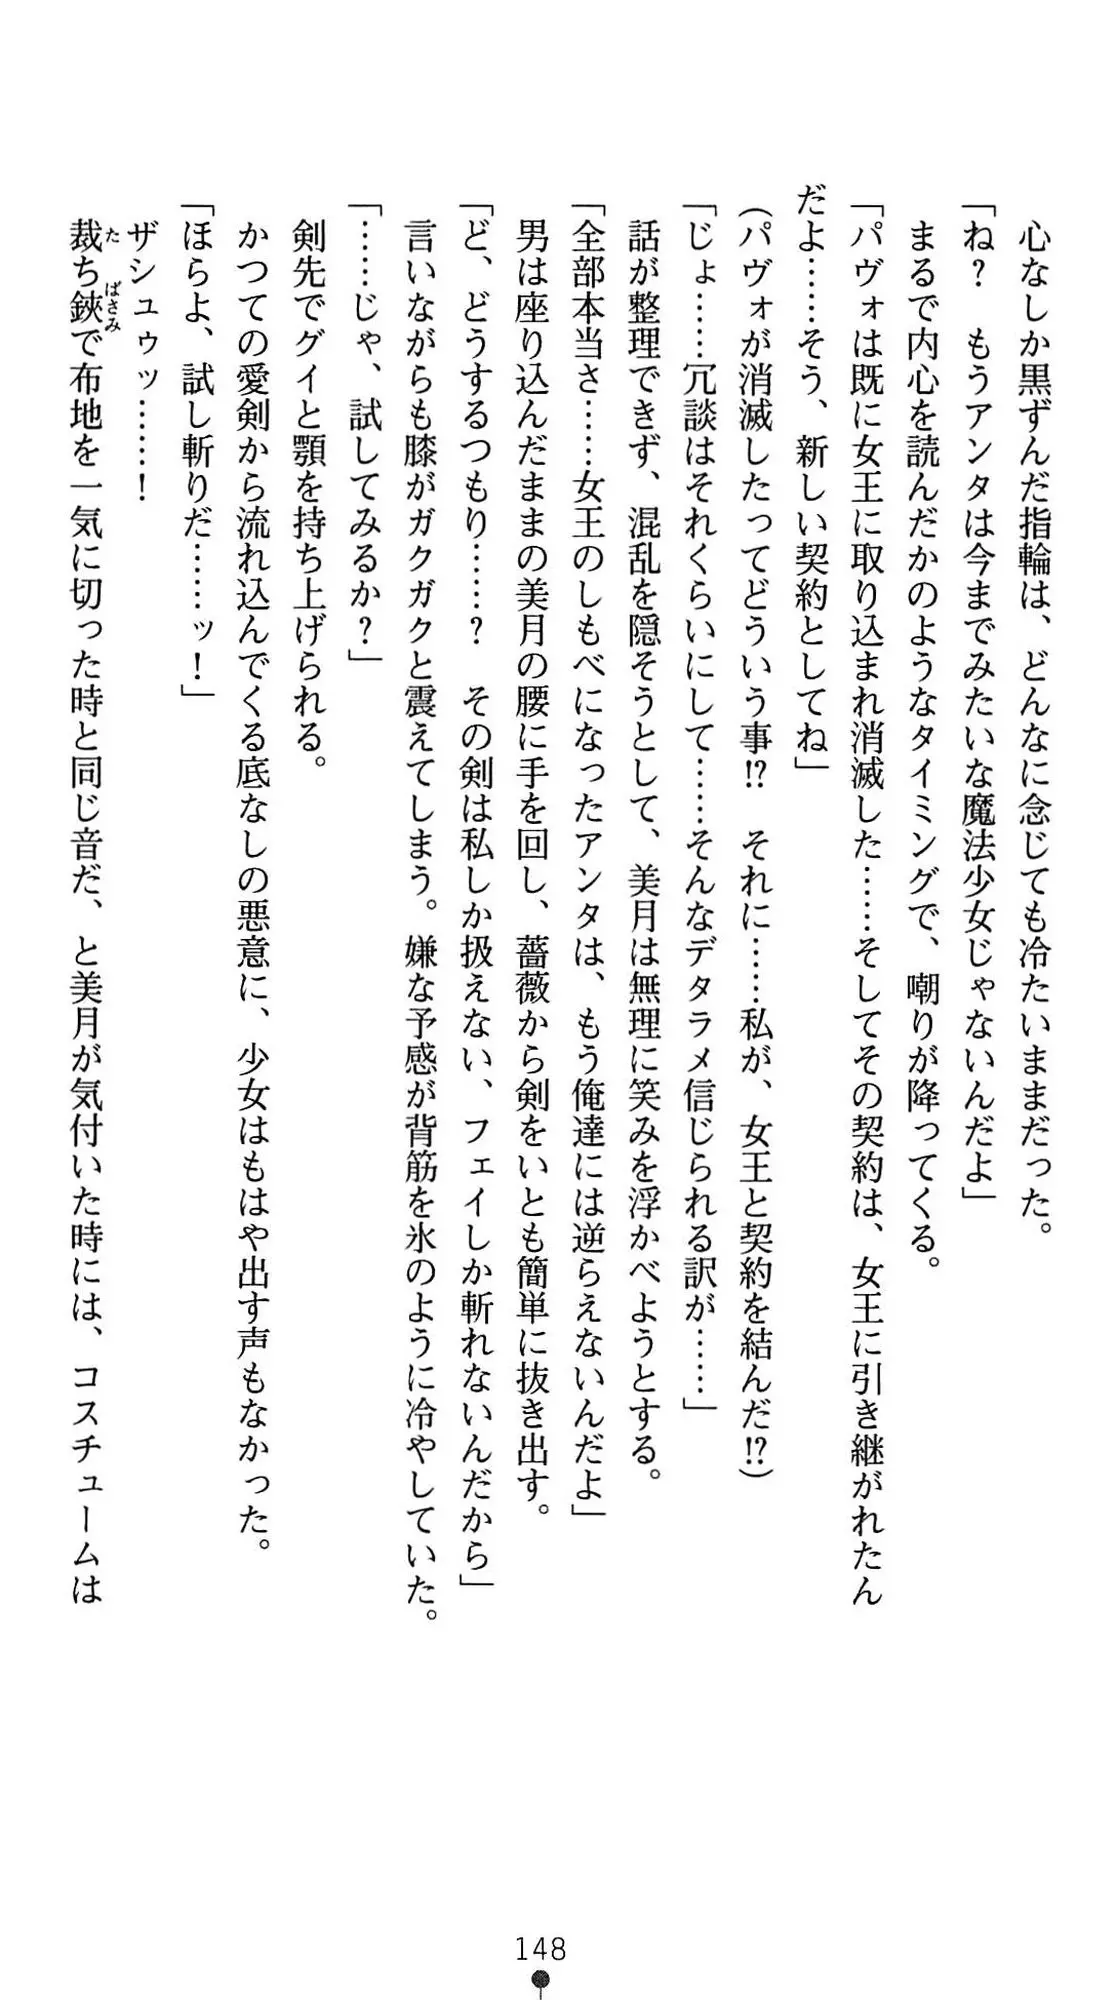 心なしか黒ずんだ指輪は、どんなに念じても冷たいままだった。
「ね？　もうアンタは今までみたいな魔法少女じゃないんだよ」
まるで内心を読んだかのようなタイミングで、嘲りが降ってくる。
「パヴォは既に女王に取り込まれ消滅した……そしてその契約は、女王に引き継がれたん
だよ……そう、新しい契約としてね」
(パヴォが消滅したってどういう事!?　それに……私が、女王と契約を結んだ!?)
「じょ……冗談はそれくらいにして……そんなデタラメ信じられる訳が……」
話が整理できず、混乱を隠そうとして、美月は無理に笑みを浮かべようとする。
「全部本当さ……女王のしもべになったアンタは、もう俺達には逆らえないんだよ」
男は座り込んだままの美月の腰に手を回し、薔薇から剣をいとも簡単に抜き出す。
「ど、どうするつもり……？　その剣は私しか扱えない、フェイしか斬れないんだから」
言いながらも膝がガクガクと震えてしまう。嫌な予感が背筋を氷のように冷やしていた。
「……じゃ、試してみるか？」
剣先でグイと顎を持ち上げられる。
かつての愛剣から流れ込んでくる底なしの悪意に、少女はもはや出す声もなかった。
「ほらよ、試し斬りだ……ッ！」
ザシュゥッ……！
裁ち鋏で布地を一気に切った時と同じ音だ、と美月が気付いた時には、コスチュームは
た　ばさみ
148